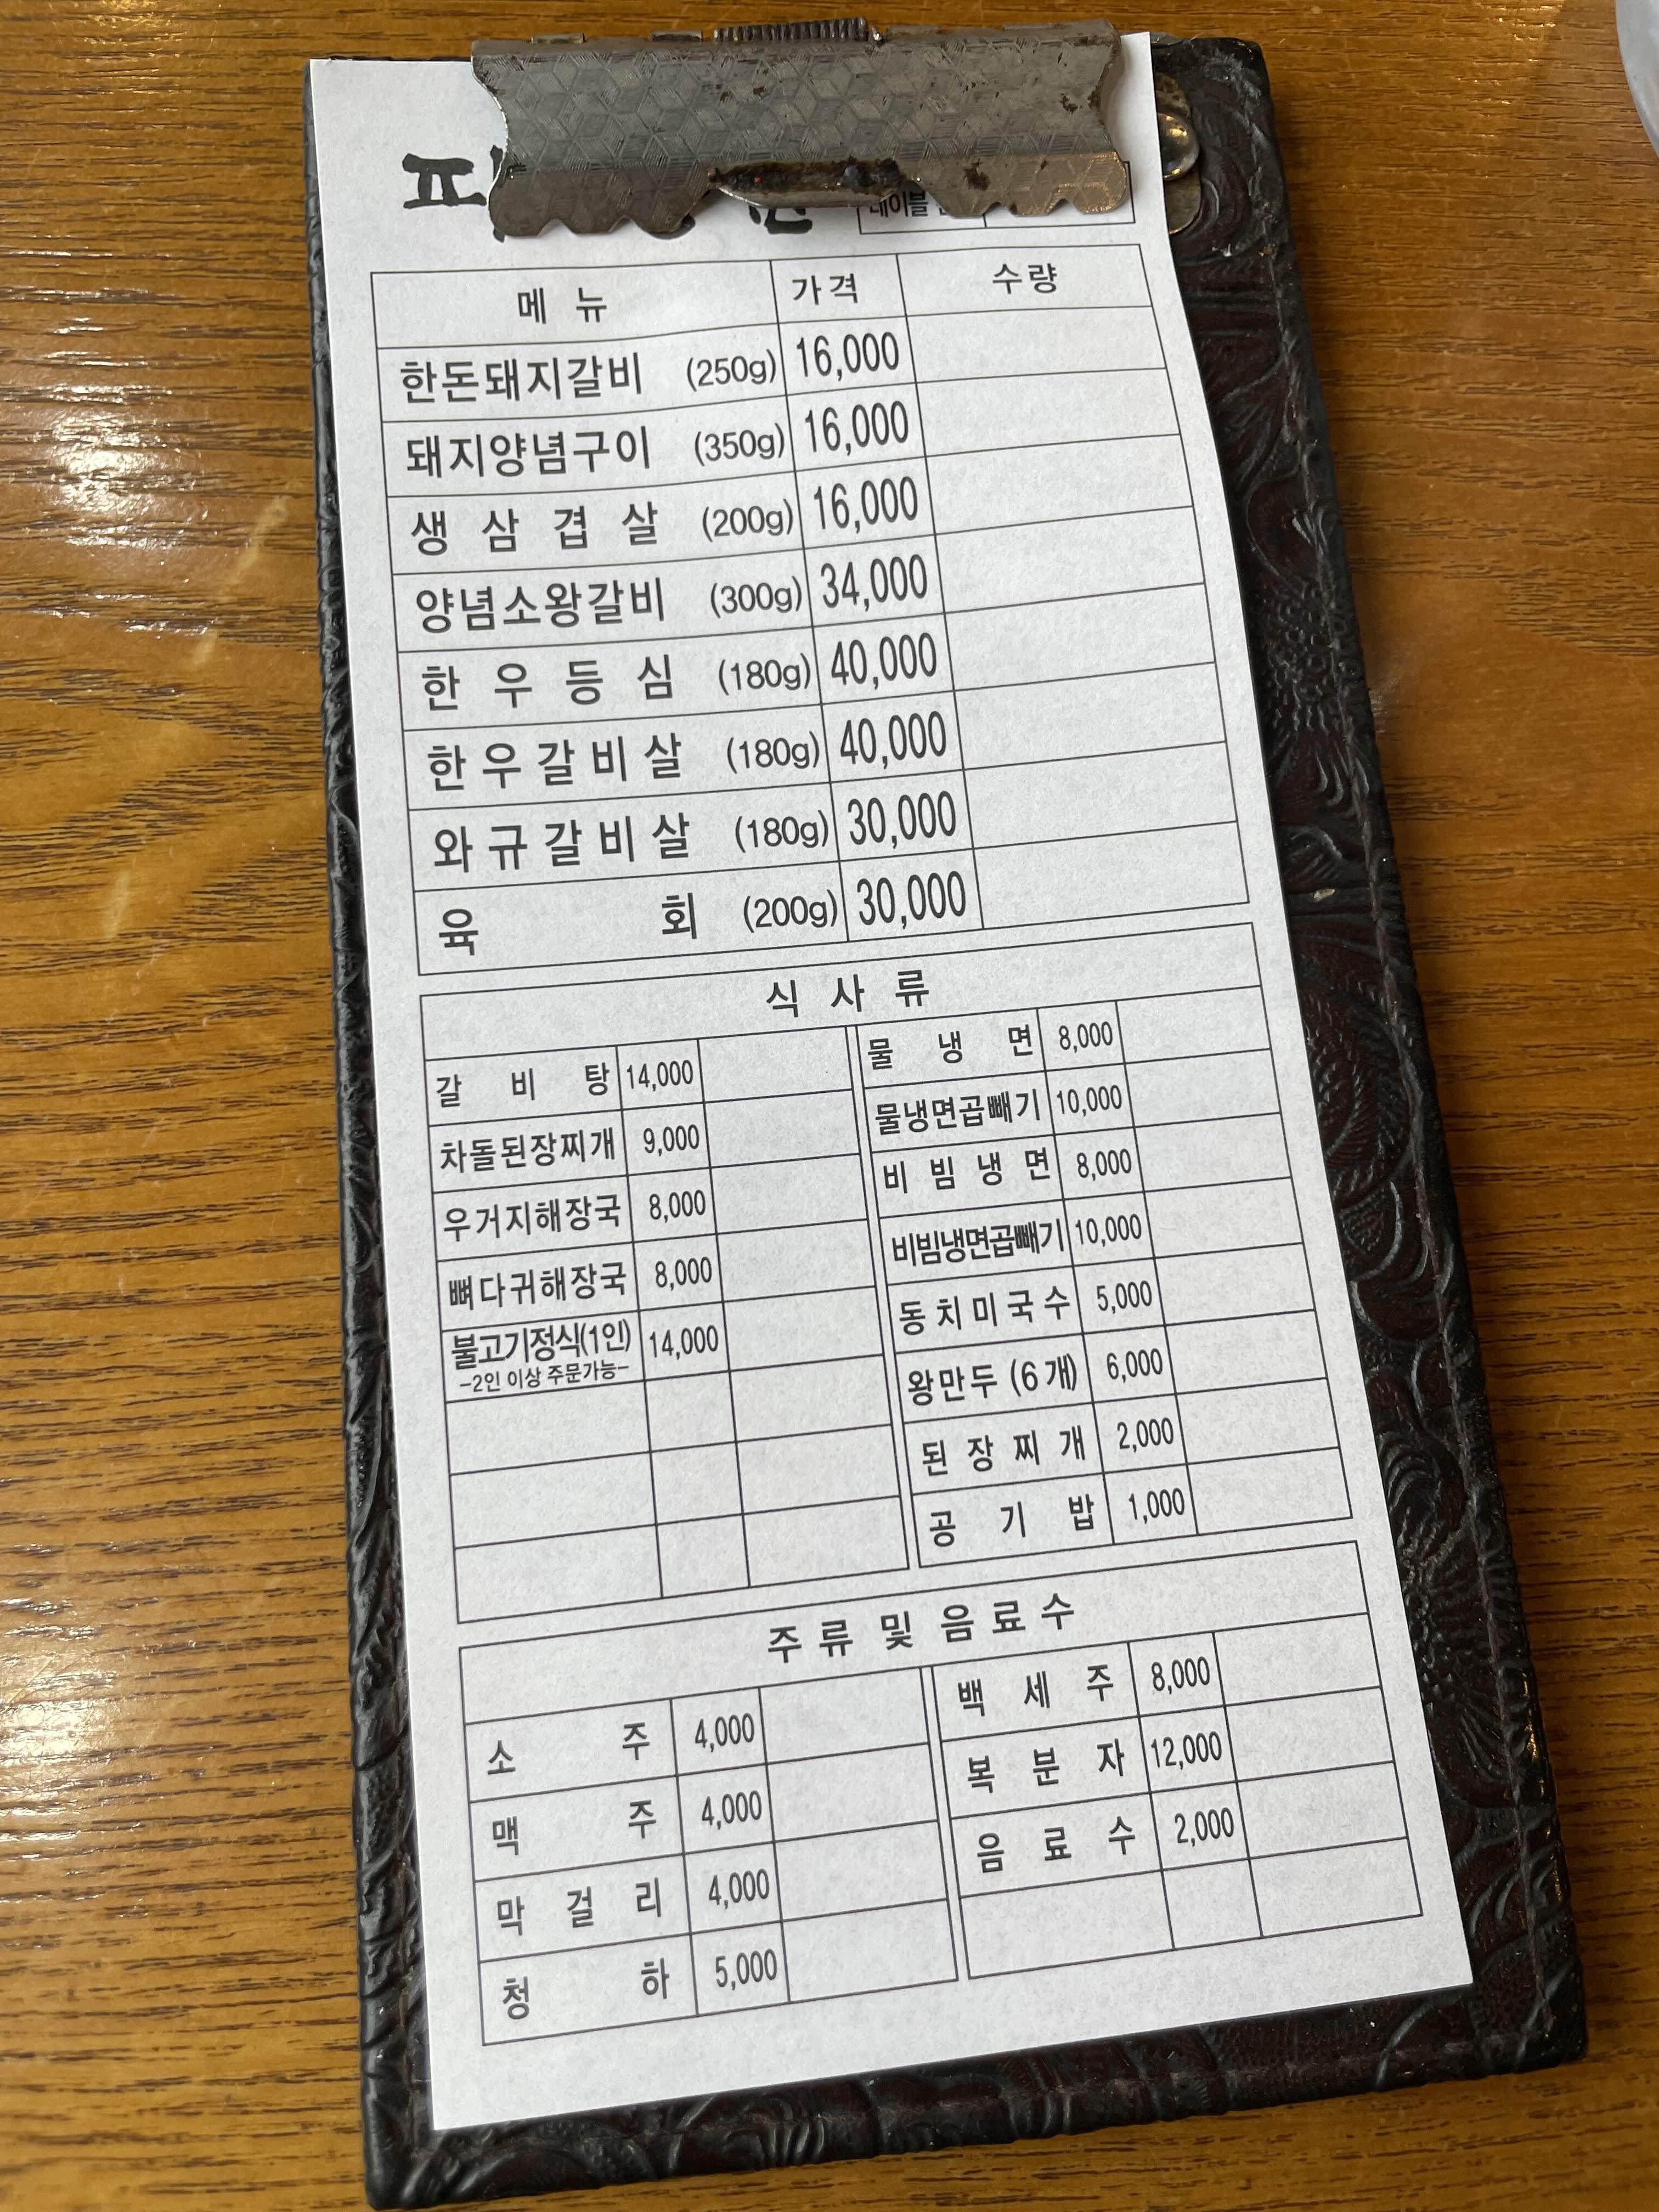 테이블
메 뉴 가격 수량
한돈돼지갈비 (250g) 16,000
돼지양념구이 (350g) 16,000
생 삼 겹 살 (200g) 16,000
양념소왕갈비 (300g) 34,000
한 우 등 심 (180g) 40,000
한 우 갈 비 살 (180g) 40,000
와 규 갈 비 살 (180g) 30,000
육 회 (200g) 30,000
식 사 류
갈 비 탕 14,000
차돌된장찌개 9,000
우거지해장국 8,000
뼈다귀해장국 8,000
불고기정식(1인) 14,000
-2인 이상 주문가능-
물 냉 면 8,000
물냉면곱빼기 10,000
비 빔 냉 면 8,000
비빔냉면곱빼기 10,000
동 치 미 국 수 5,000
왕만두 (6개) 6,000
된 장 찌 개 2,000
공 기 밥 1,000
주 류 및 음 료 수
소 주 4,000
맥 주 4,000
막 걸 리 4,000
청 하 5,000
백 세 주 8,000
복 분 자 12,000
음 료 수 2,000